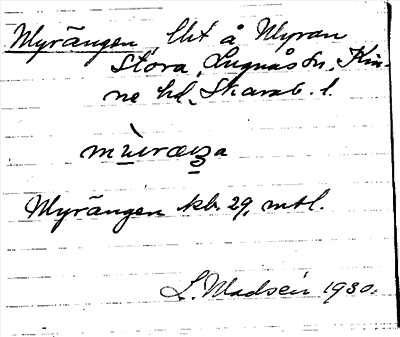 Myrängen, lht å Myran
Stora, Lugnås sn, Kin-
ne hd, Skarab. l.
Myrängen kb. 29, mtl.
L. Madsén 1930.